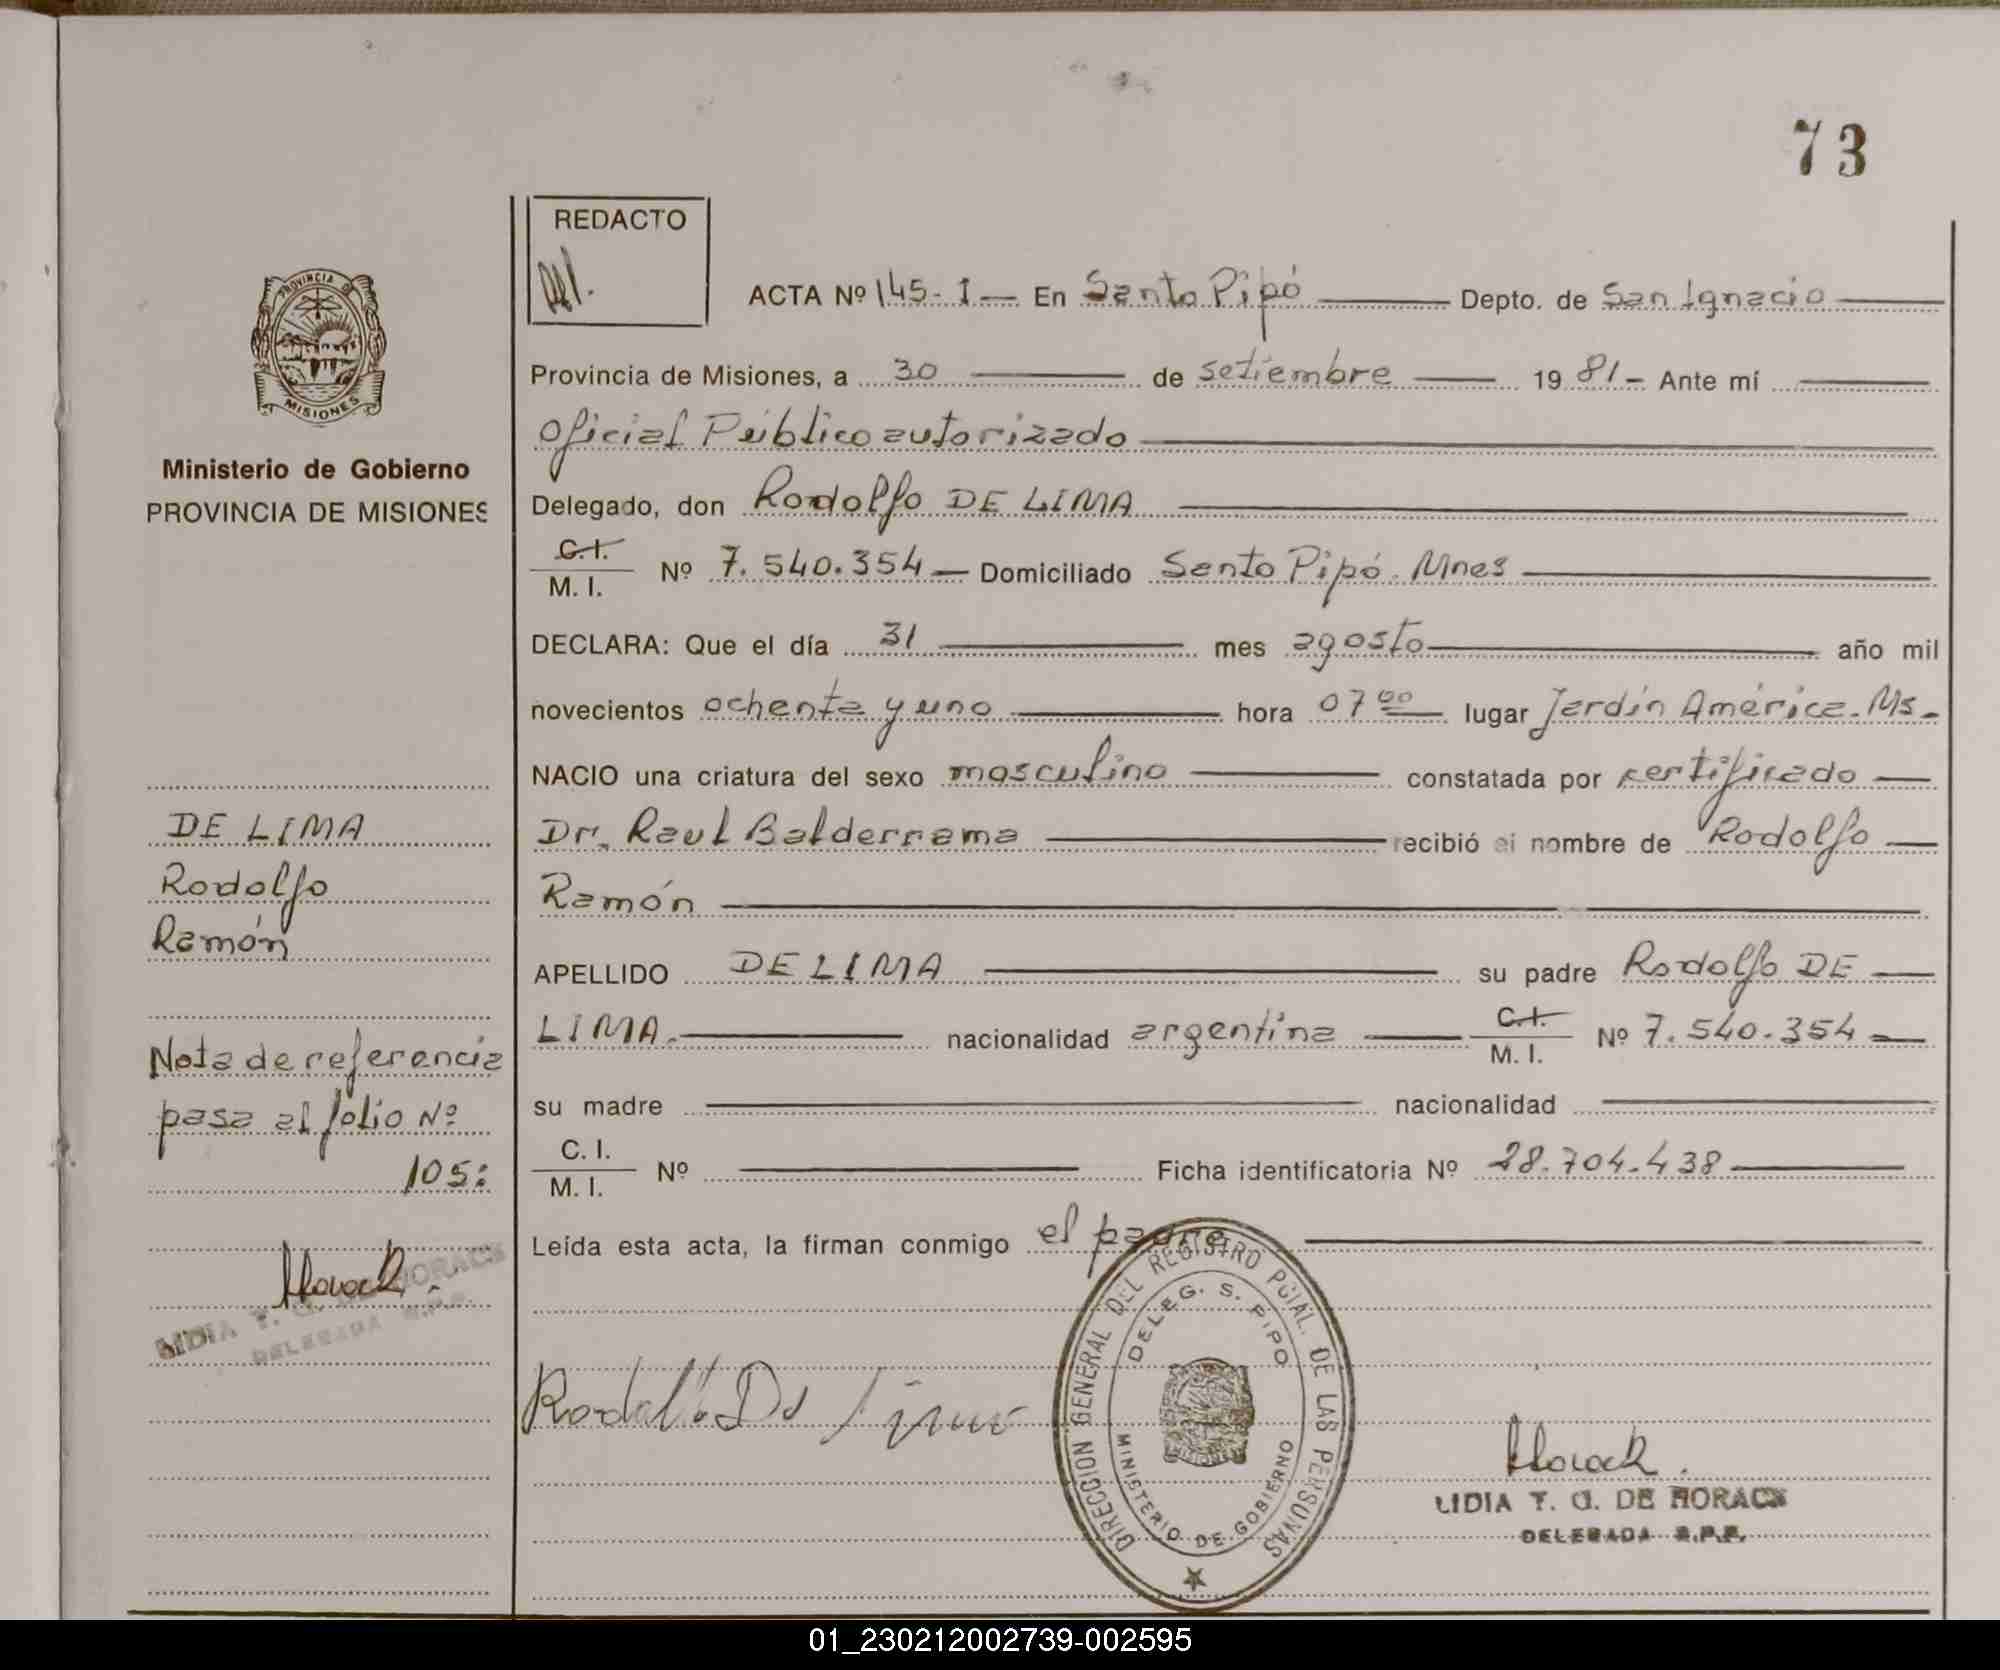 73
REDACTO
ACTA Nº 145-I — En Santo Pipó — Depto. de San Ignacio
PROVINCIA DE
MISIONES
Provincia de Misiones, a 30 de setiembre 19 81 - Ante mí
Oficial Público autorizado
Ministerio de Gobierno
PROVINCIA DE MISIONES
Delegado, don Rodolfo DE LIMA
C.I.
M. I. Nº 7.540.354 — Domiciliado Santo Pipó. Mnes
DECLARA: Que el día 31 mes agosto año mil
novecientos ochenta y uno hora 07 00 lugar Jardín América. Ms.-
NACIO una criatura del sexo masculino constatada por certificado
Dr. Raul Balderrama recibió el nombre de Rodolfo
Ramón
APELLIDO DE LIMA su padre Rodolfo DE
LIMA. nacionalidad argentina C.I.
M. I. Nº 7.540.354
su madre nacionalidad
C. I.
M. I. Nº Ficha identificatoria Nº 28.704.438
Leída esta acta, la firman conmigo el padre
DE LIMA
Rodolfo
Ramón
Nota de referencia
pasa al folio Nº
105:
Horack.
LIDIA T. G. DE HORACK
DELEGADA R.P.P.
Rodolfo De Lima
DIRECCION GENERAL DEL REGISTRO PCIAL. DE LAS PERSONAS
DELEG. S. PIPO
MINISTERIO DE GOBIERNO
Horack.
LIDIA T. G. DE HORACK
DELEGADA R.P.P.
01_230212002739-002595